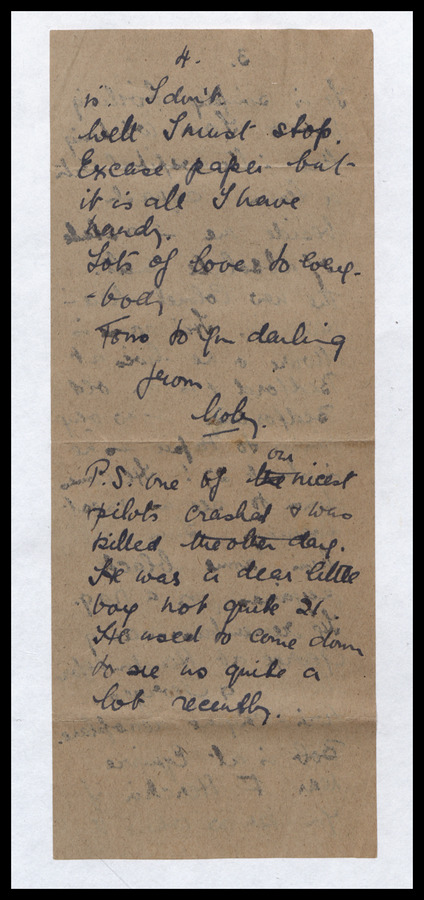 4.
is. I don't
Well I must stop.
Excuse paper but
it is all I have
handy.
Lots of love to every-
-body
to you darling
from
P.S. one of the our nicest
pilots crashed & was
killed the other day.
He was a dear little
boy not quite 21.
He used to come down
to see us quite a
lot recently.